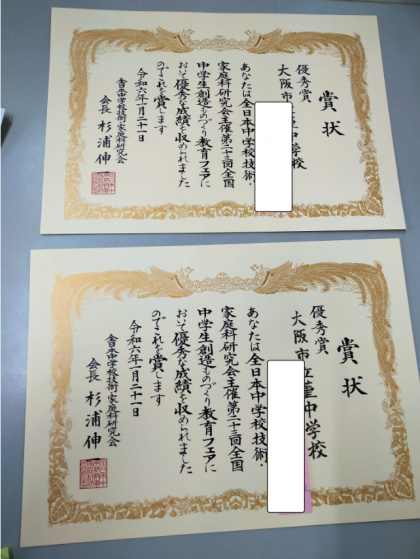 賞状
優秀賞
大阪市
中学校
あなたは全日本中学校技術・
家庭科研究会主催第二十三回全国
中学生創造ものづくり教育フェアに
おいて優秀な成績を収められました
のでこれを賞します
令和六年一月二十一日
全日本中学校技術・家庭科研究会
会長 杉浦伸一
賞状
優秀賞
大阪市立菫中学校
あなたは全日本中学校技術・
家庭科研究会主催第二十三回全国
中学生創造ものづくり教育フェアに
おいて優秀な成績を収められました
のでこれを賞します
令和六年一月二十一日
全日本中学校技術・家庭科研究会
会長 杉浦伸一